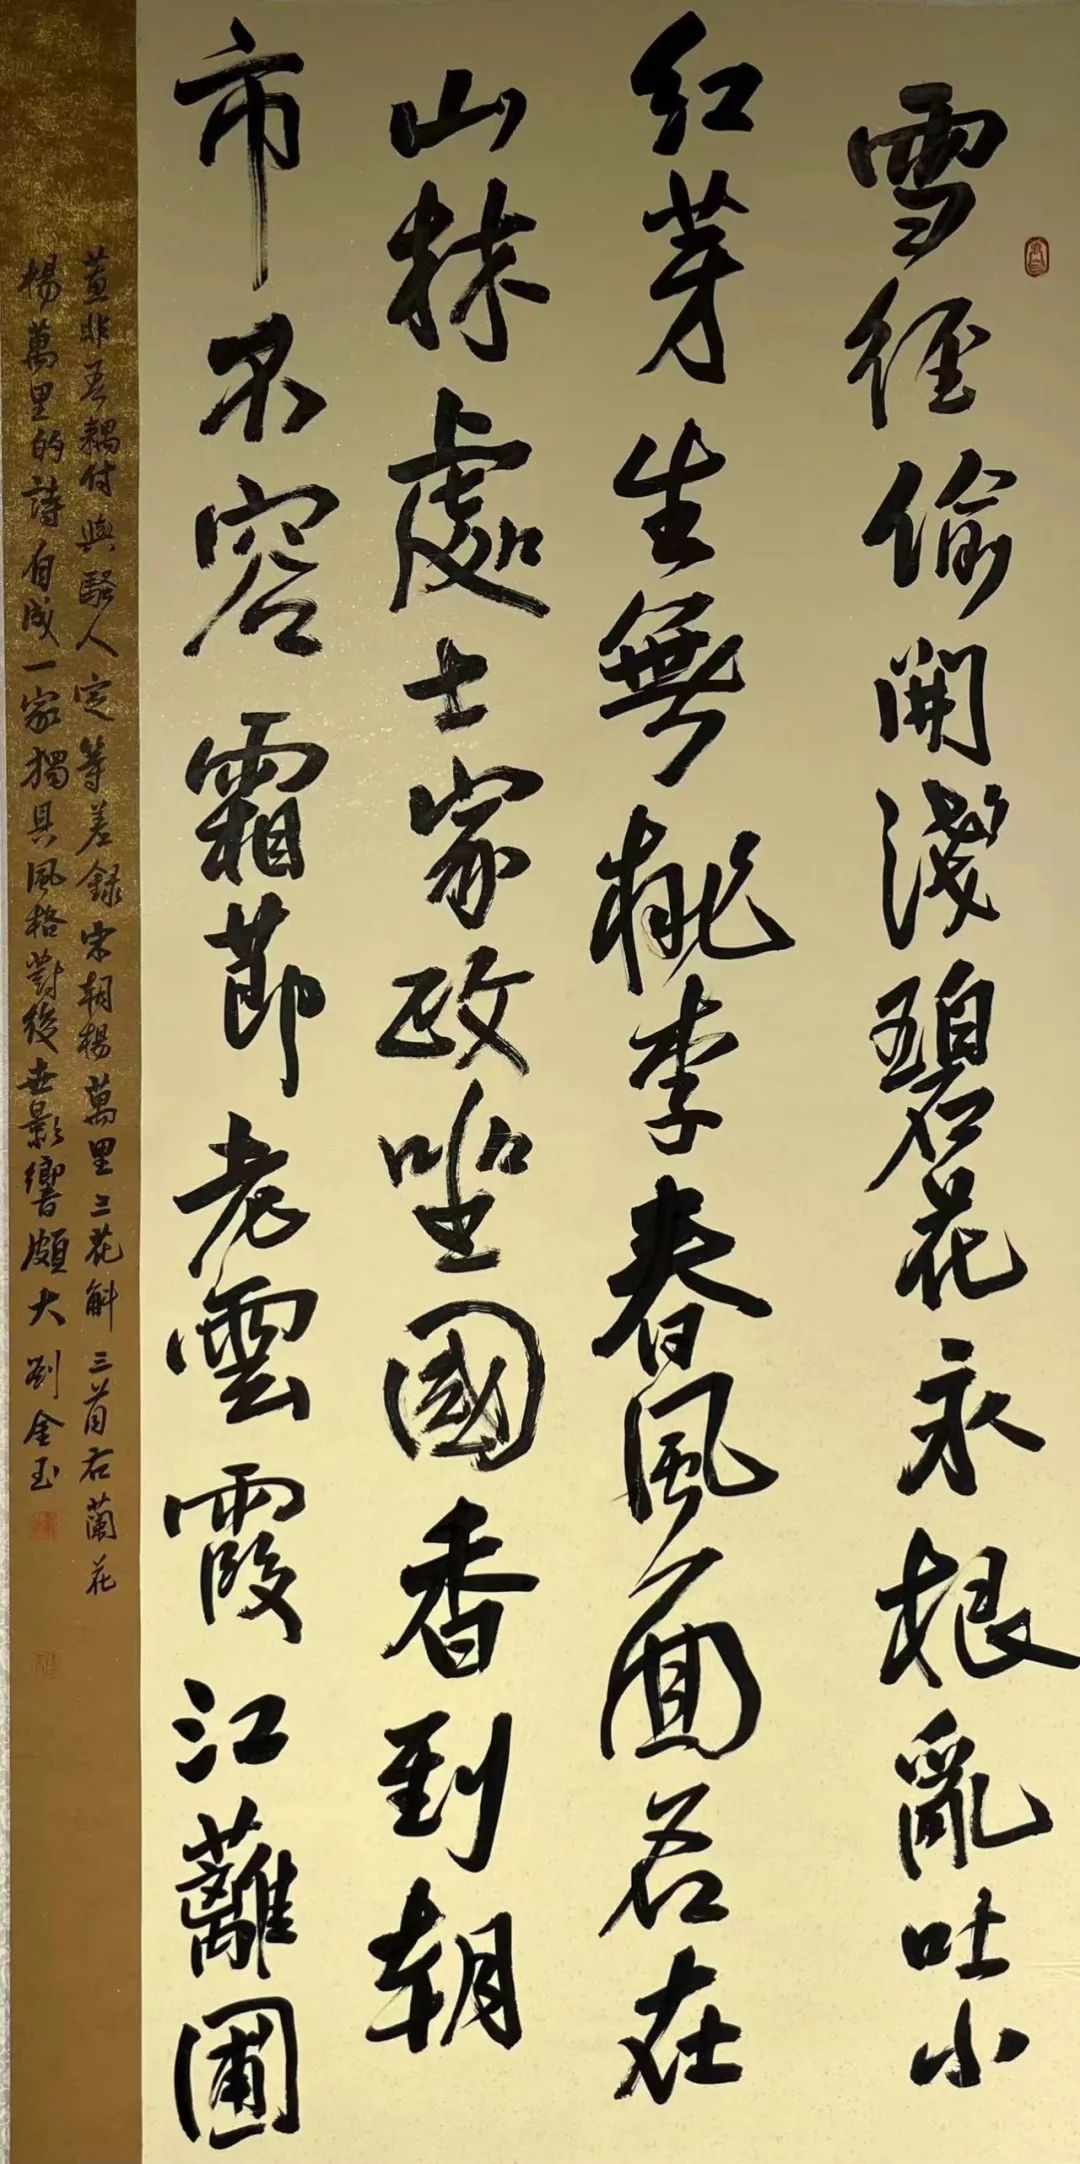 雪径偷開淺碧花永根亂吐小
红芽生無桃李春風面名在
山林處士家政坐國香到朝
市不容霜節老雲霞江蘺圃
蕙非吾耦付與騷人定等差録宋朝楊萬里三花斛三首右蘭花
楊萬里的詩自成一家獨具風格對後世影響頗大劉金玉